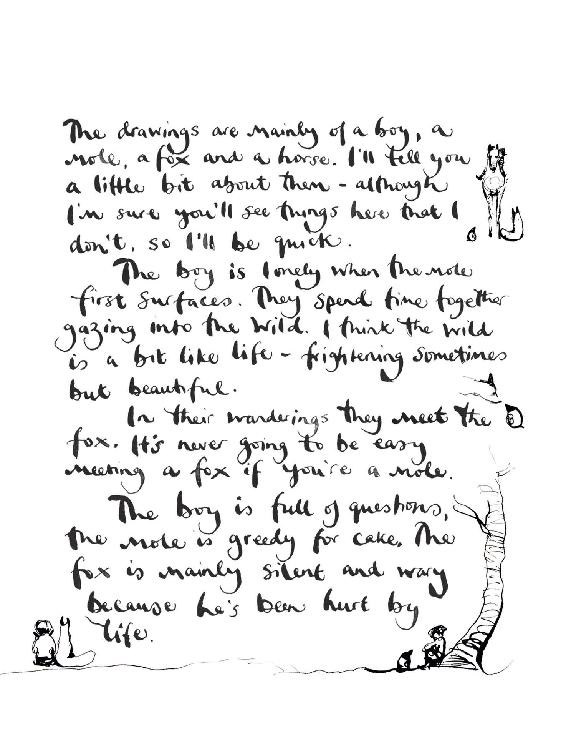 The drawings are mainly of a boy, a
mole, a fox and a horse. I'll tell you
a little bit about them - although
I'm sure you'll see things here that I
don't, so I'll be quick.
The boy is lonely when the mole
first surfaces. They spend time together
gazing into the wild. I think the wild
is a bit like life - frightening sometimes
but beautiful.
In their wanderings they meet the
fox. It's never going to be easy
meeting a fox if you're a mole.
The boy is full of questions,
the mole is greedy for cake. The
fox is mainly silent and wary
because he's been hurt by
life.